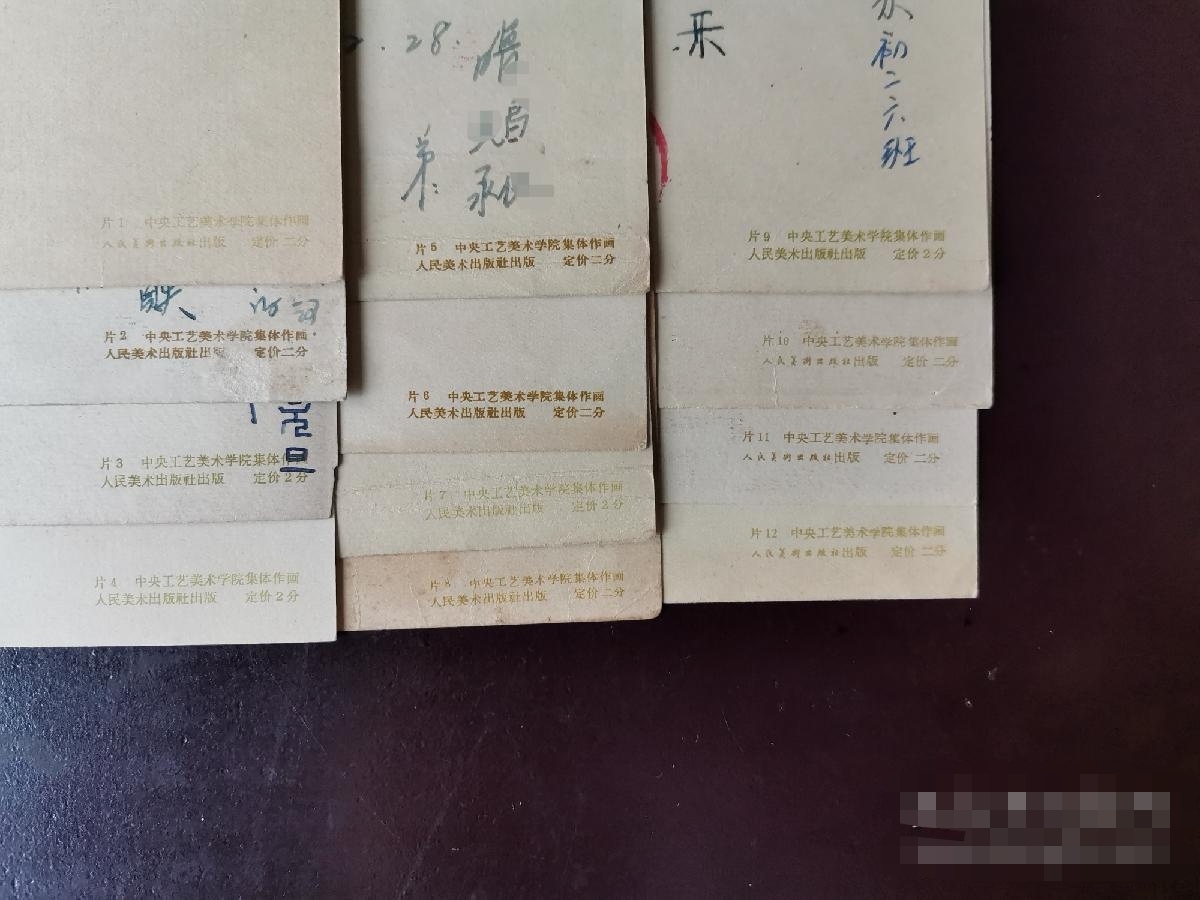 片1 中央工艺美术学院集体作画
人民美术出版社出版 定价二分
片2 中央工艺美术学院集体作画
人民美术出版社出版 定价二分
元旦
片3 中央工艺美术学院集体作画
人民美术出版社出版 定价2分
片4 中央工艺美术学院集体作画
人民美术出版社出版 定价2分
28.
弟
片5 中央工艺美术学院集体作画
人民美术出版社出版 定价二分
片6 中央工艺美术学院集体作画
人民美术出版社出版 定价二分
片7 中央工艺美术学院集体作画
人民美术出版社出版 定价2分
片8 中央工艺美术学院集体作画
人民美术出版社出版 定价二分
初二六班
片9 中央工艺美术学院集体作画
人民美术出版社出版 定价2分
片10 中央工艺美术学院集体作画
人民美術出版社出版 定价二分
片11 中央工艺美术学院集体作画
人民美術出版社出版 定价二分
片12 中央工艺美术学院集体作画
人民美術出版社出版 定价二分